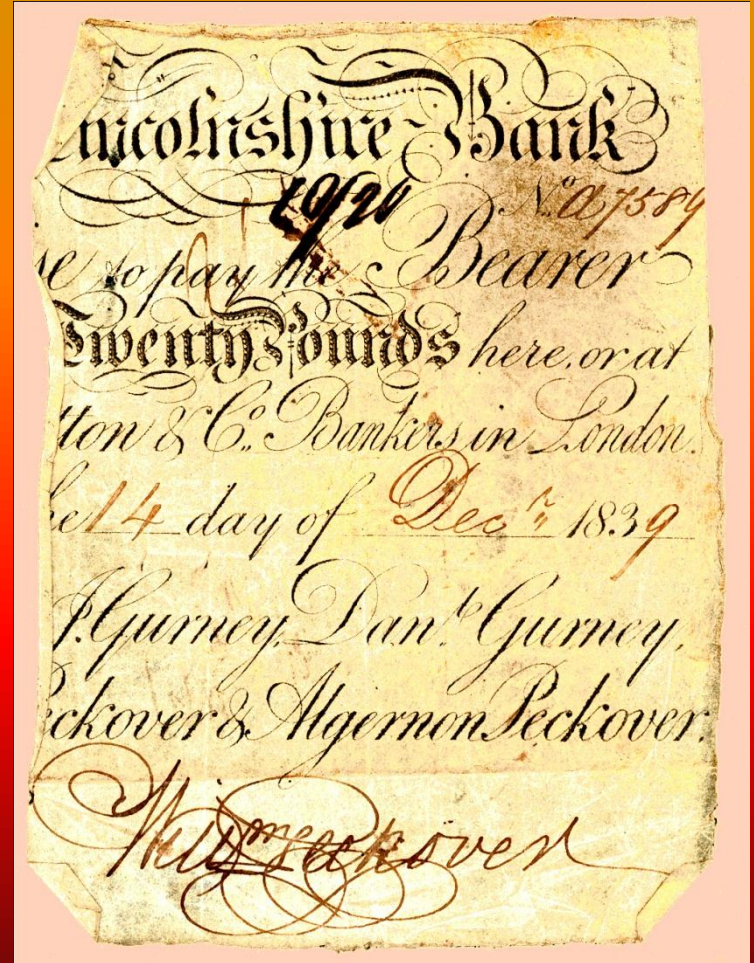 incolnshire-Bank
No. a7589
se to pay the Bearer
Twenty Pounds here, or at
tton & Co. Bankers in London.
he 14 day of Decr 1839
J. Gurney, Danl. Gurney,
eckover & Algernon Peckover.
Willm Peckover